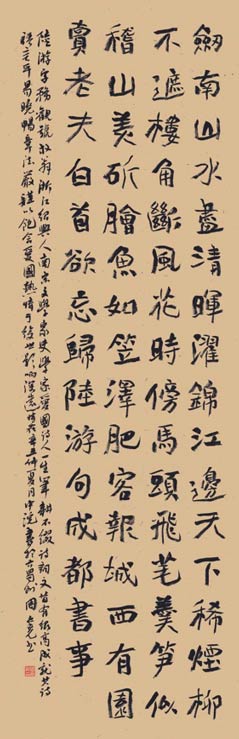 劒南山水盡清暉濯錦江邊天下稀煙柳
不遮樓角斷風花時傍馬頭飛芼羹笋似
稽山美斫膾魚如笠澤肥客報城西有園
賣老夫白首欲忘歸陸游句成都書事
陸游字務觀號放翁浙江紹興人南宋文學家史學家愛國詩人一生筆耕不輟詩詞文皆有很高成就其詩
語言平易曉暢章法嚴謹以飽含愛國熱情于後世影响深遠時在辛丑仲夏月中浣書於古蜀劍國